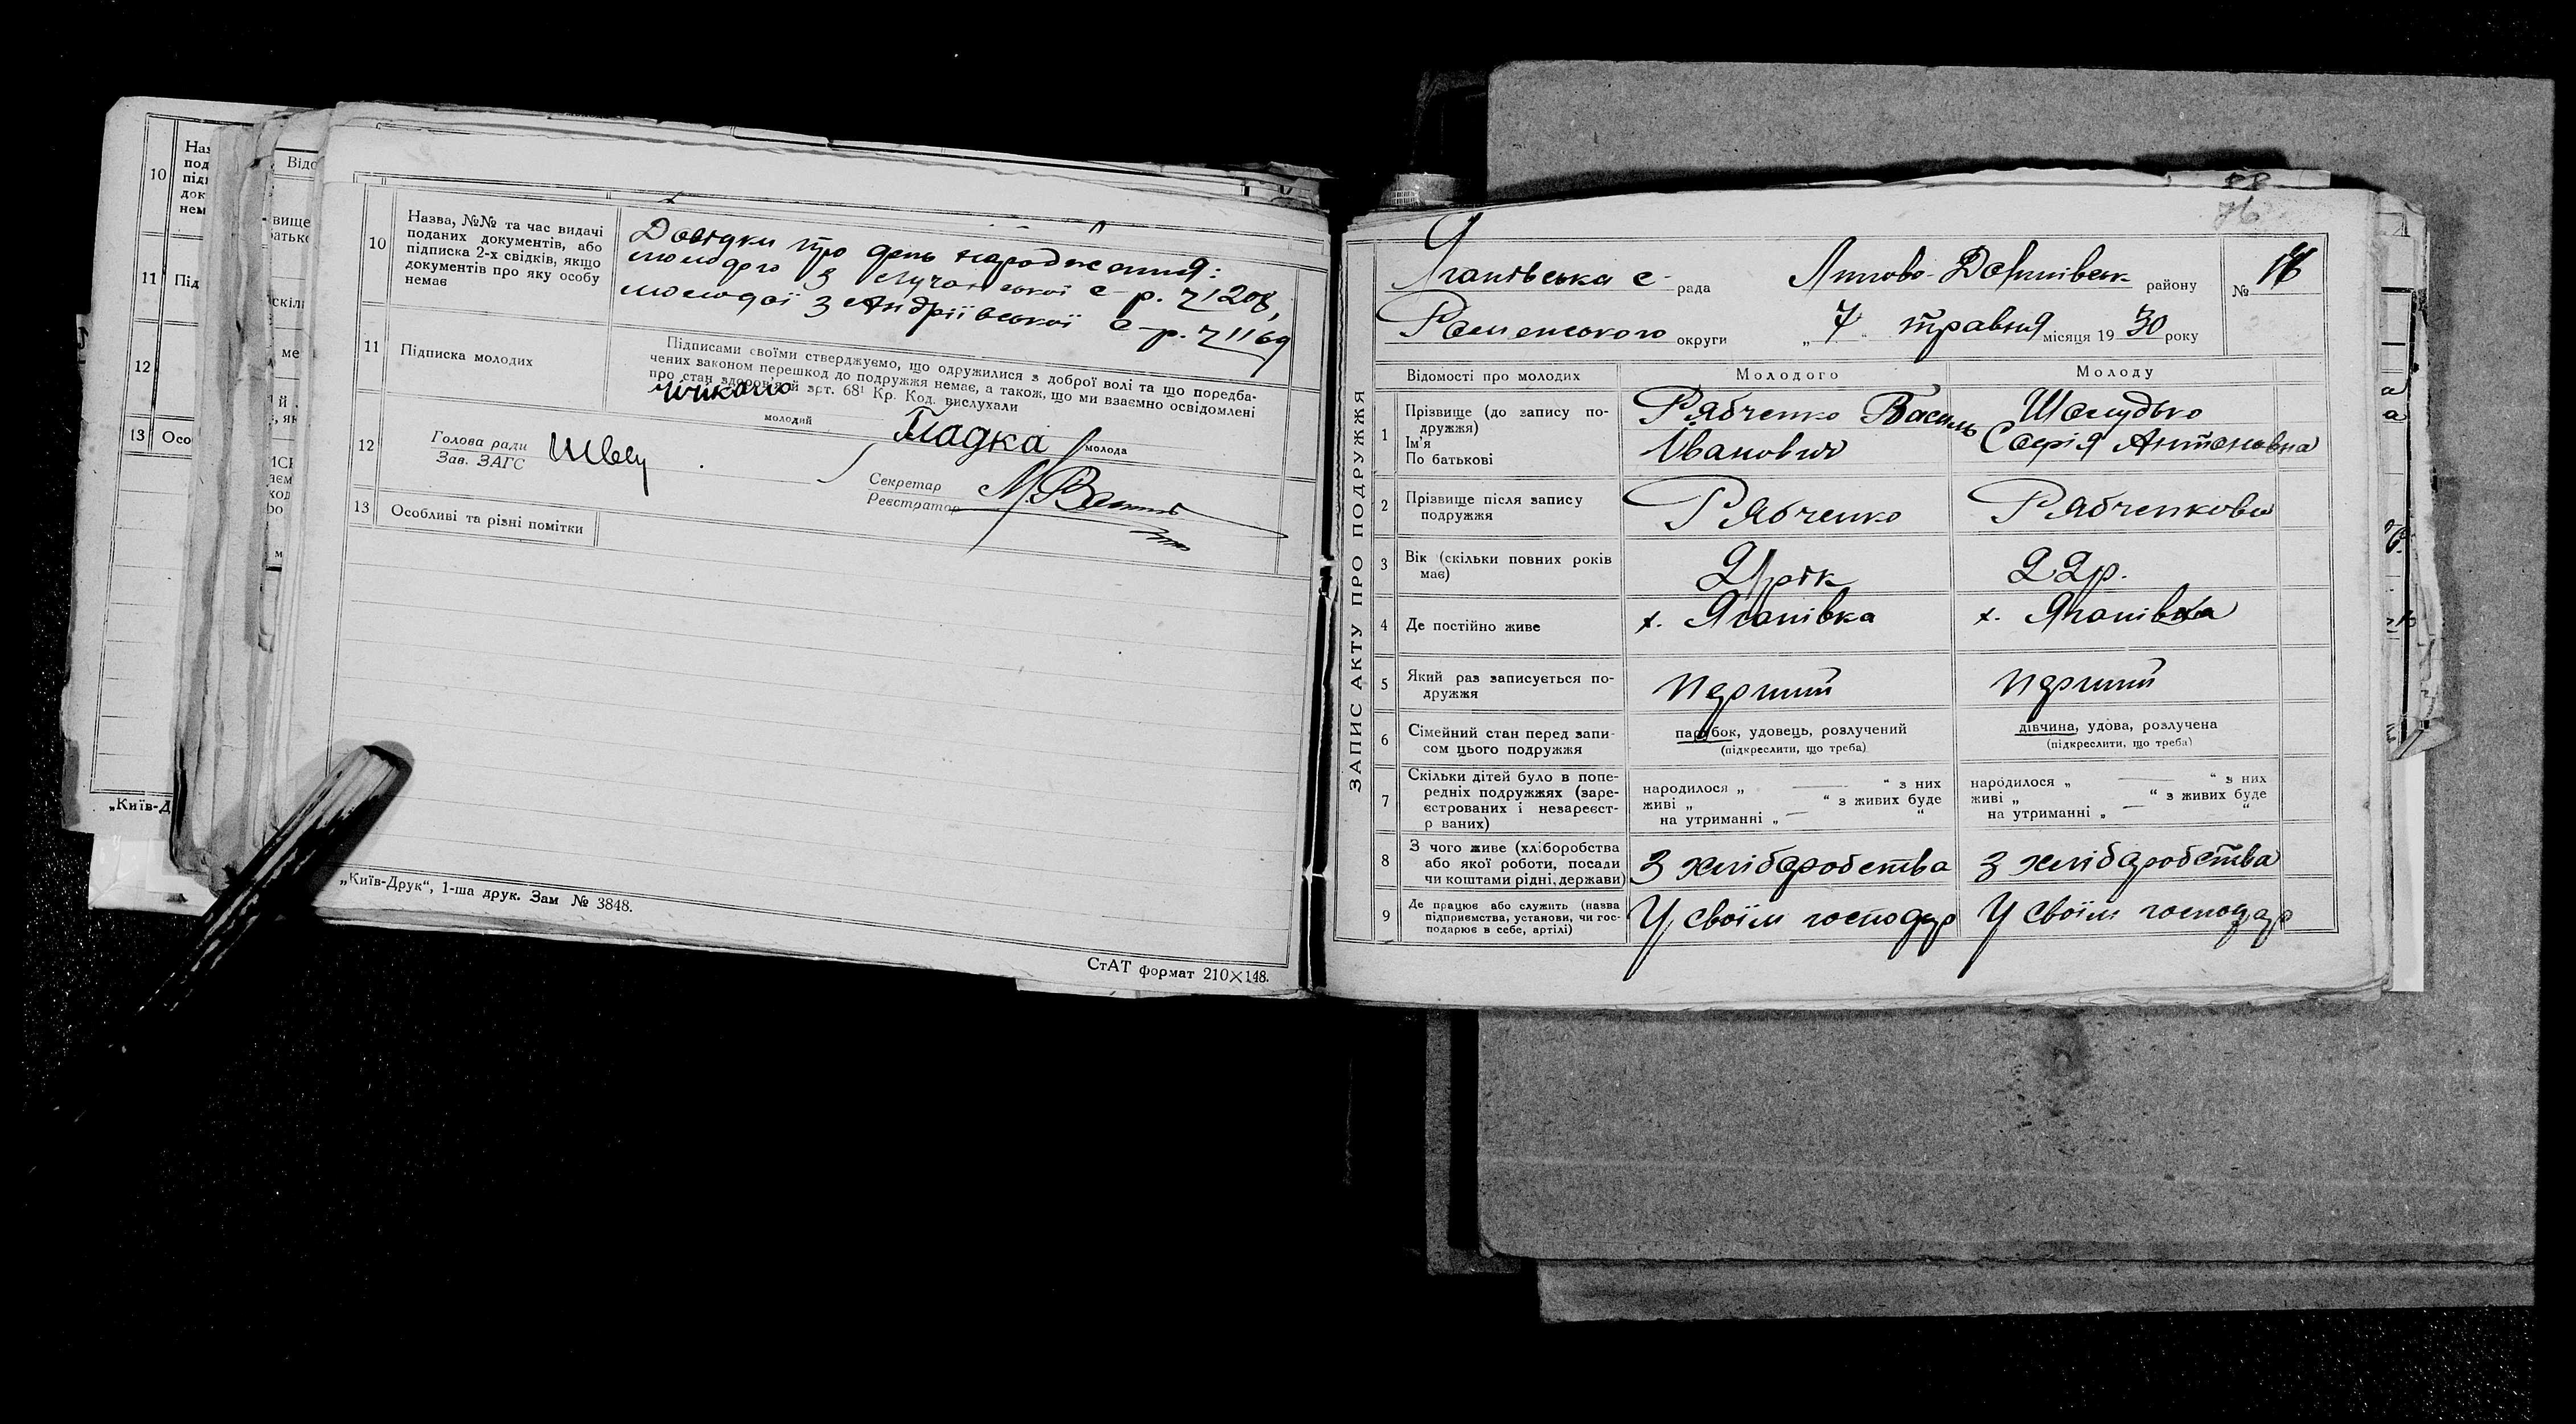 10
Назва, №№ та час видачі
поданих документів, або
підписка 2-х свідків, якщо
документів про яку особу
немає
Довідки про день народження:
молодого з с р. ч 1208,
молодої з Андріївської с-р. ч 1169
11
Підписка молодих
Підписами своїми стверджуємо, що одружилися з доброї волі та що поредба-
чених законом перешкод до подружжя немає, а також, що ми взаємно освідомлені
про стан здоров'я й арт. 68¹ Кр. Код. вислухали
молодий
Гладка
молода
12
Голова ради
Зав. ЗАГС
Швец
Секретар
Реєстратор
13
Особливі та різні помітки
„Київ-Друк“, 1-ша друк. Зам № 3848.
СтАТ формат 210×148.
10
11 Під
12
13 Осо
„Київ-Д
76
ЗАПИС АКТУ ПРО ПОДРУЖЖЯ
Яганівська с. рада Липово-Долинівськ району №
Роменського округи „ 7 “ травня місяця 1930 року
Відомості про молодих
Молодого
Молоду
1
Прізвище (до запису по-
дружжя)
Ім'я
По батькові
Рябченко Василь
Іванович
Шелудько
Софія Антоновна
2
Прізвище після запису
подружжя
Рябченко
Рябченкова
3
Вік (скільки повних років
має)
21 рік
22 р.
4
Де постійно живе
х. Яганівка
х. Яганівка
5
Який раз записується по-
дружжя
перший
перший
6
Сімейний стан перед запи-
сом цього подружжя
парубок, удовець, розлучений
(підкреслити, що треба)
дівчина, удова, розлучена
(підкреслити, що треба)
7
Скільки дітей було в попе-
редніх подружжях (заре-
єстрованих і незареєст-
р ваних)
народилося „ — “ з них
живі „ “ з живих буде
на утриманні „ — “
народилося „ — “ з них
живі „ “ з живих буде
на утриманні „ — “
8
З чого живе (хліборобства
або якої роботи, посади
чи коштами рідні, держави)
З хліборобства
З хліборобства
9
Де працює або служить (назва
підприємства, установи, чи гос-
подарює в себе, артілі)
У своїм господар
У своїм господар